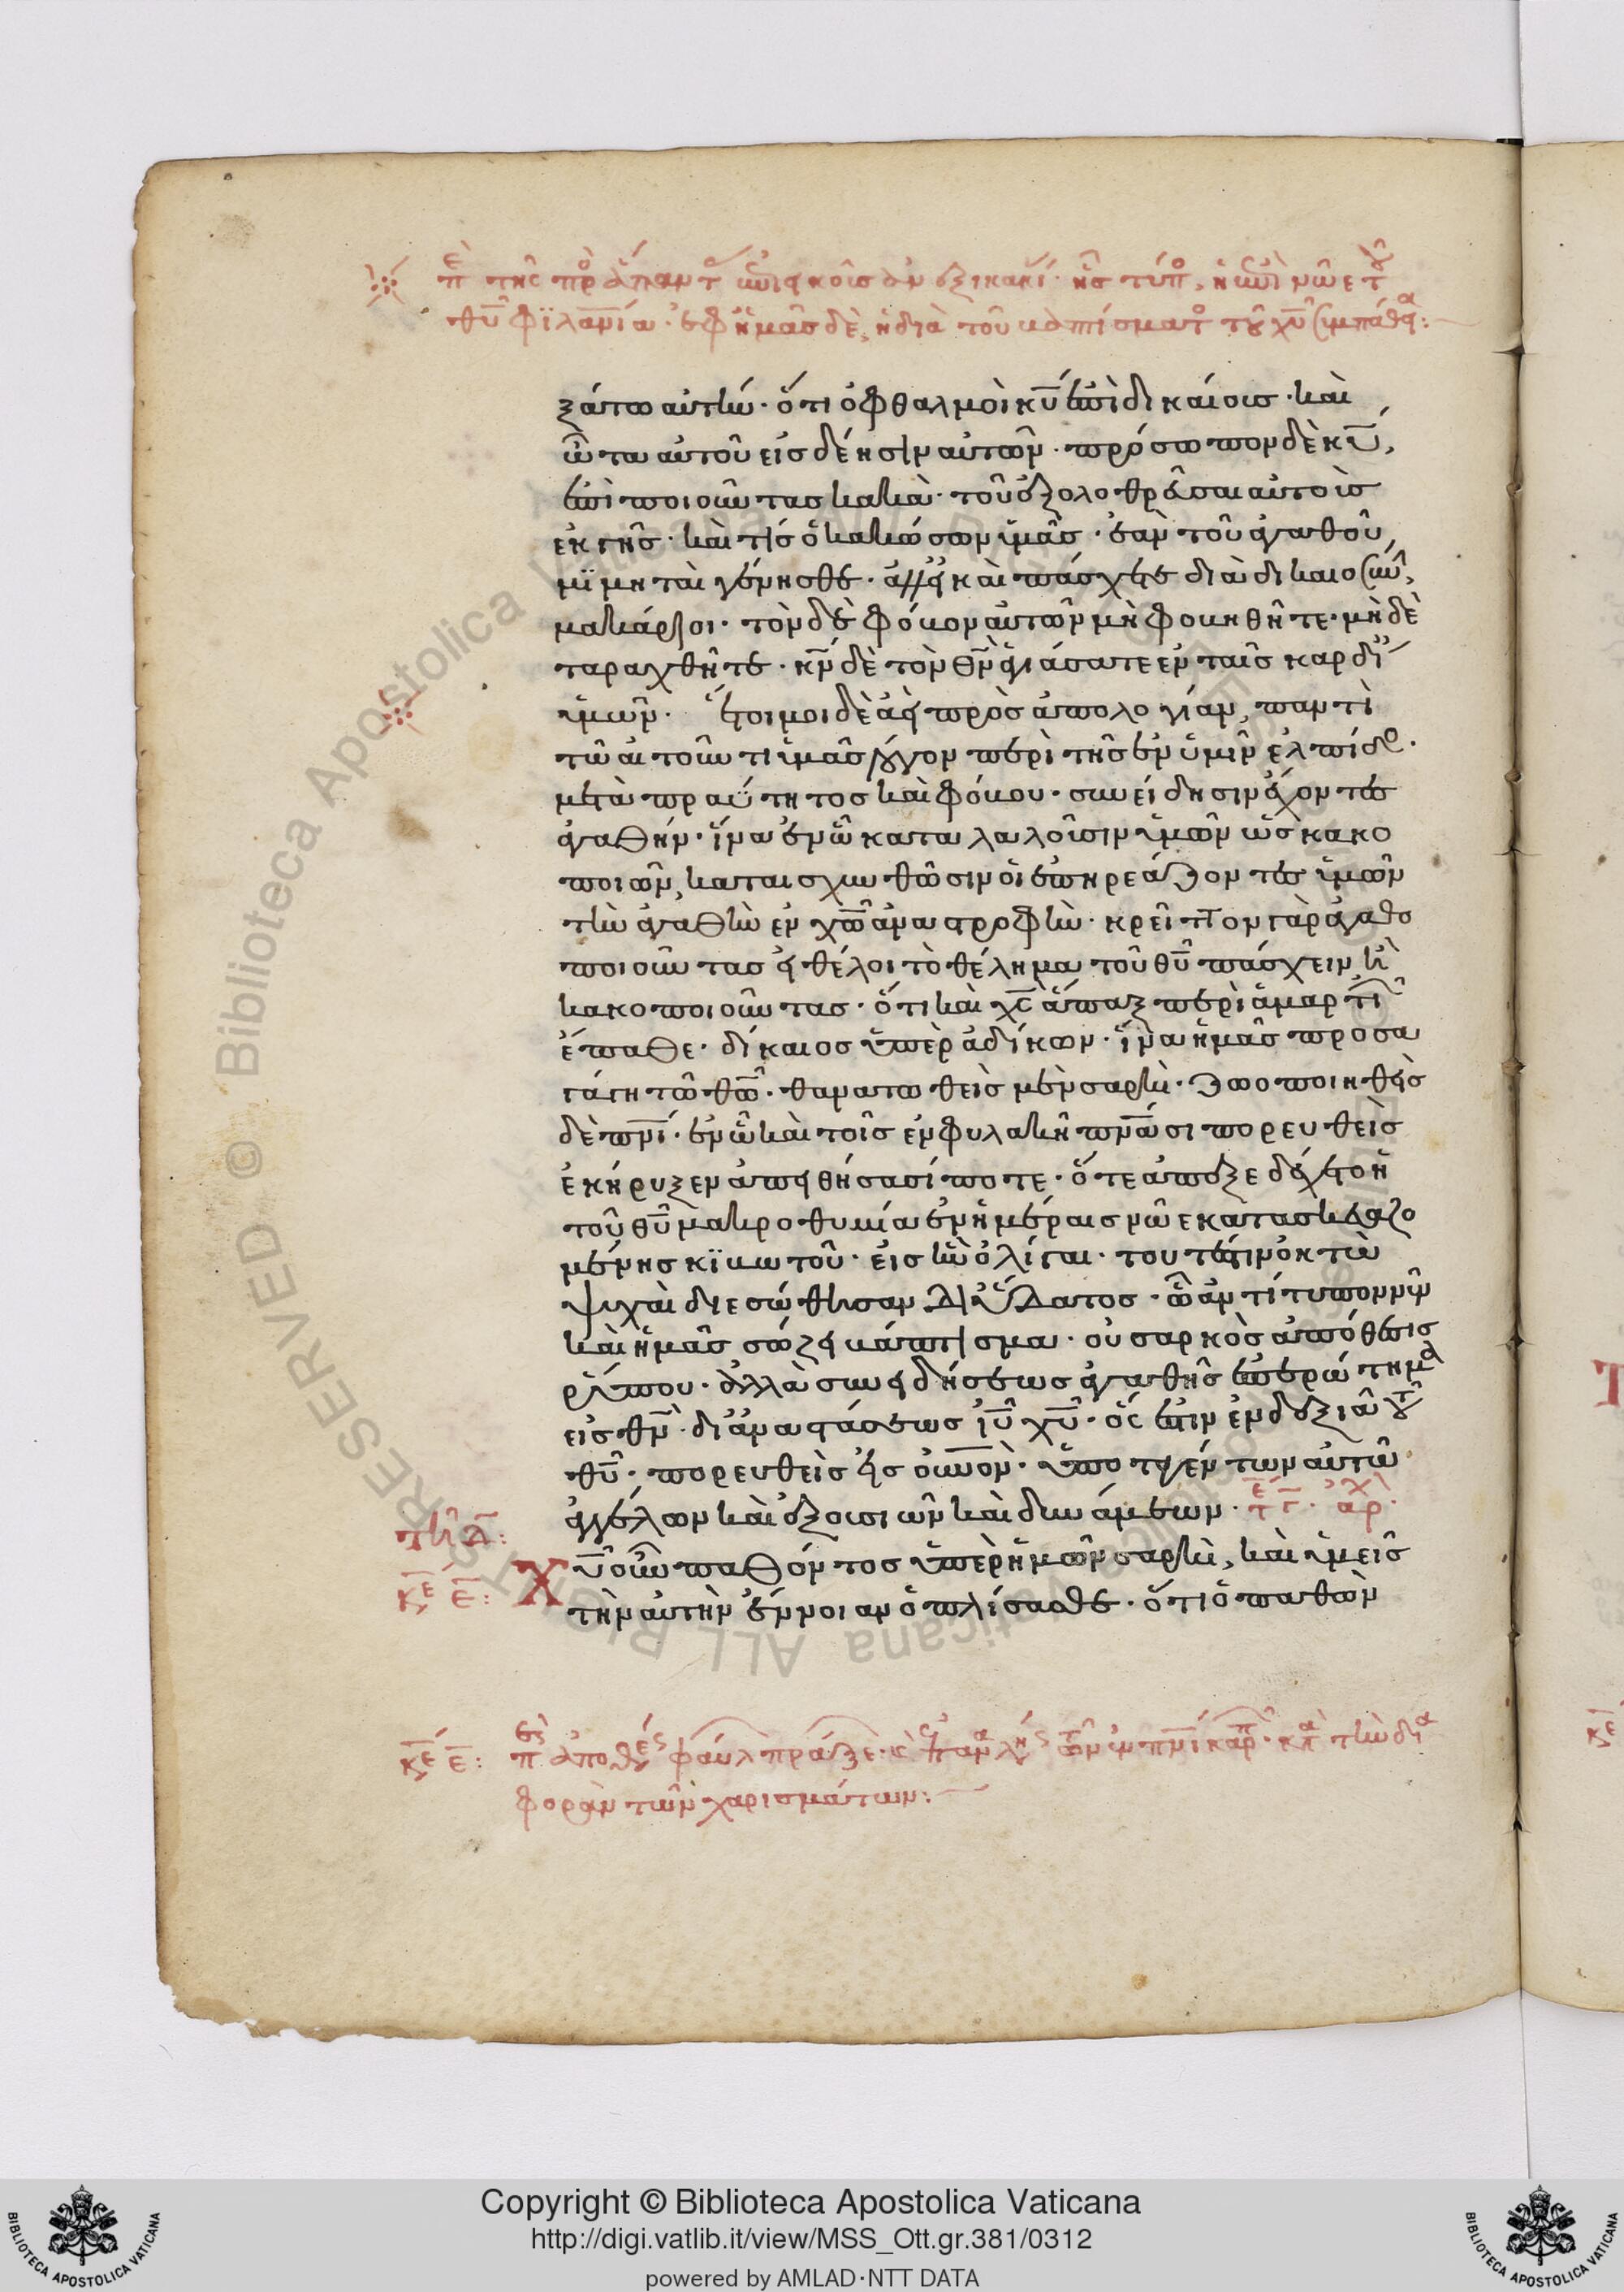 ξάτω αὐτήν· ὅτι ὀφθαλμοὶ κυ ἐπὶ δικαίους· καὶ
ὦτα αὐτοῦ εἰς δέησιν αὐτῶν· πρόσωπον δὲ κυ,
ἐπὶ ποιοῦντας κακὰ· τοῦ ἐξολοθρεῦσαι αὐτοὺς
ἐκ γῆς· καὶ τίς ὁ κακώσων ὑμᾶς· ἐὰν τοῦ ἀγαθοῦ,
μϊμηταὶ γένησθε· ἀλλ' εἰ καὶ πάσχετε διὰ δικαιοσύν,
μακάριοι· τὸν δὲ φόβον αὐτῶν μὴ φοβηθῆτε· μὴ δὲ
ταραχθῆτε· κν δὲ τὸν θν ἁγιάσατε ἐν ταῖς καρδί
ὑμῶν· ἕτοιμοι δὲ ἀεὶ πρὸς ἀπολογίαν, παντὶ
τῶ αἰτοῦντι ὑμᾶς λόγον περὶ τῆς ἐν ὑμῖν ἐλπίδο·
μετὰ πραΰτητος καὶ φόβου· συνείδησιν ἔχοντες
ἀγαθήν· ἵνα ἐν ὧ καταλαλοῦσιν ὑμῶν ὡς κακο
ποιῶν, καταισχυνθῶσιν οἱ ἐπηρεάζοντες ὑμῶν
τὴν ἀγαθὴν ἐν χω ἀναστροφὴν· κρεῖττον γὰρ ἀγαθο
ποιοῦντας εἰ θέλοι τὸ θέλημα τοῦ θυ πάσχειν ἢ
κακοποιοῦντας· ὅτι καὶ χς ἅπαξ περὶ ἁμαρτι
ἔπαθε· δίκαιος ὑπὲρ ἀδίκων· ἵνα ἡμᾶς προσα
γάγη τῶ θω· θανατωθεὶς μὲν σαρκὶ· ζωοποιηθεὶς
δὲ πνι· ἐν ὧ καὶ τοῖς ἐν φυλακῆ πνασι πορευθεὶς
ἐκήρυξεν ἀπειθήσασί ποτε· ὅτε ἀπεξεδέχετο ἡ
τοῦ θυ μακροθυμία ἐν ἡμέραις νῶε κατασκευαζο
μένης κϊβωτοῦ· εἰς ἣν ὀλίγαι· τουτέστιν ὀκτὼ
ψυχαὶ διεσώθησαν δι' ὕδατος· ὧ ἀντίτυπον νῦν
καὶ ἡμᾶς σώζει βάπτισμα· οὐ σαρκὸς ἀπόθεσις
ρύπου· ἀλλὰ συνειδήσεως ἀγαθῆς ἐπερώτημα
εἰς θν· δι' ἀναστάσεως ιυ χυ· ὅς ἐστιν ἐν δεξιᾶ τοῦ
θυ· πορευθεὶς εἰς οὐνον· ὑποταγέντων αὐτῶ
ἀγγέλων καὶ ἐξουσιῶν καὶ δυνάμεων· τε τ· ἀρχ·
κε ε:
Χυ οὖν παθόντος ὑπὲρ ἡμῶν σαρκὶ, καὶ ὑμεῖς
τὴν αὐτὴν ἔννοιαν ὁπλίσασθε· ὅτι ὁ παθὼν
φορὰν τῶν χαρισμάτων:
Copyright © Biblioteca Apostolica Vaticana
http://digi.vatlib.it/view/MSS_Ott.gr.381/0312
powered by AMLAD·NTT DATA
BIBLIOTECA APOSTOLICA VATICANA
BIBLIOTECA APOSTOLICA VATICANA